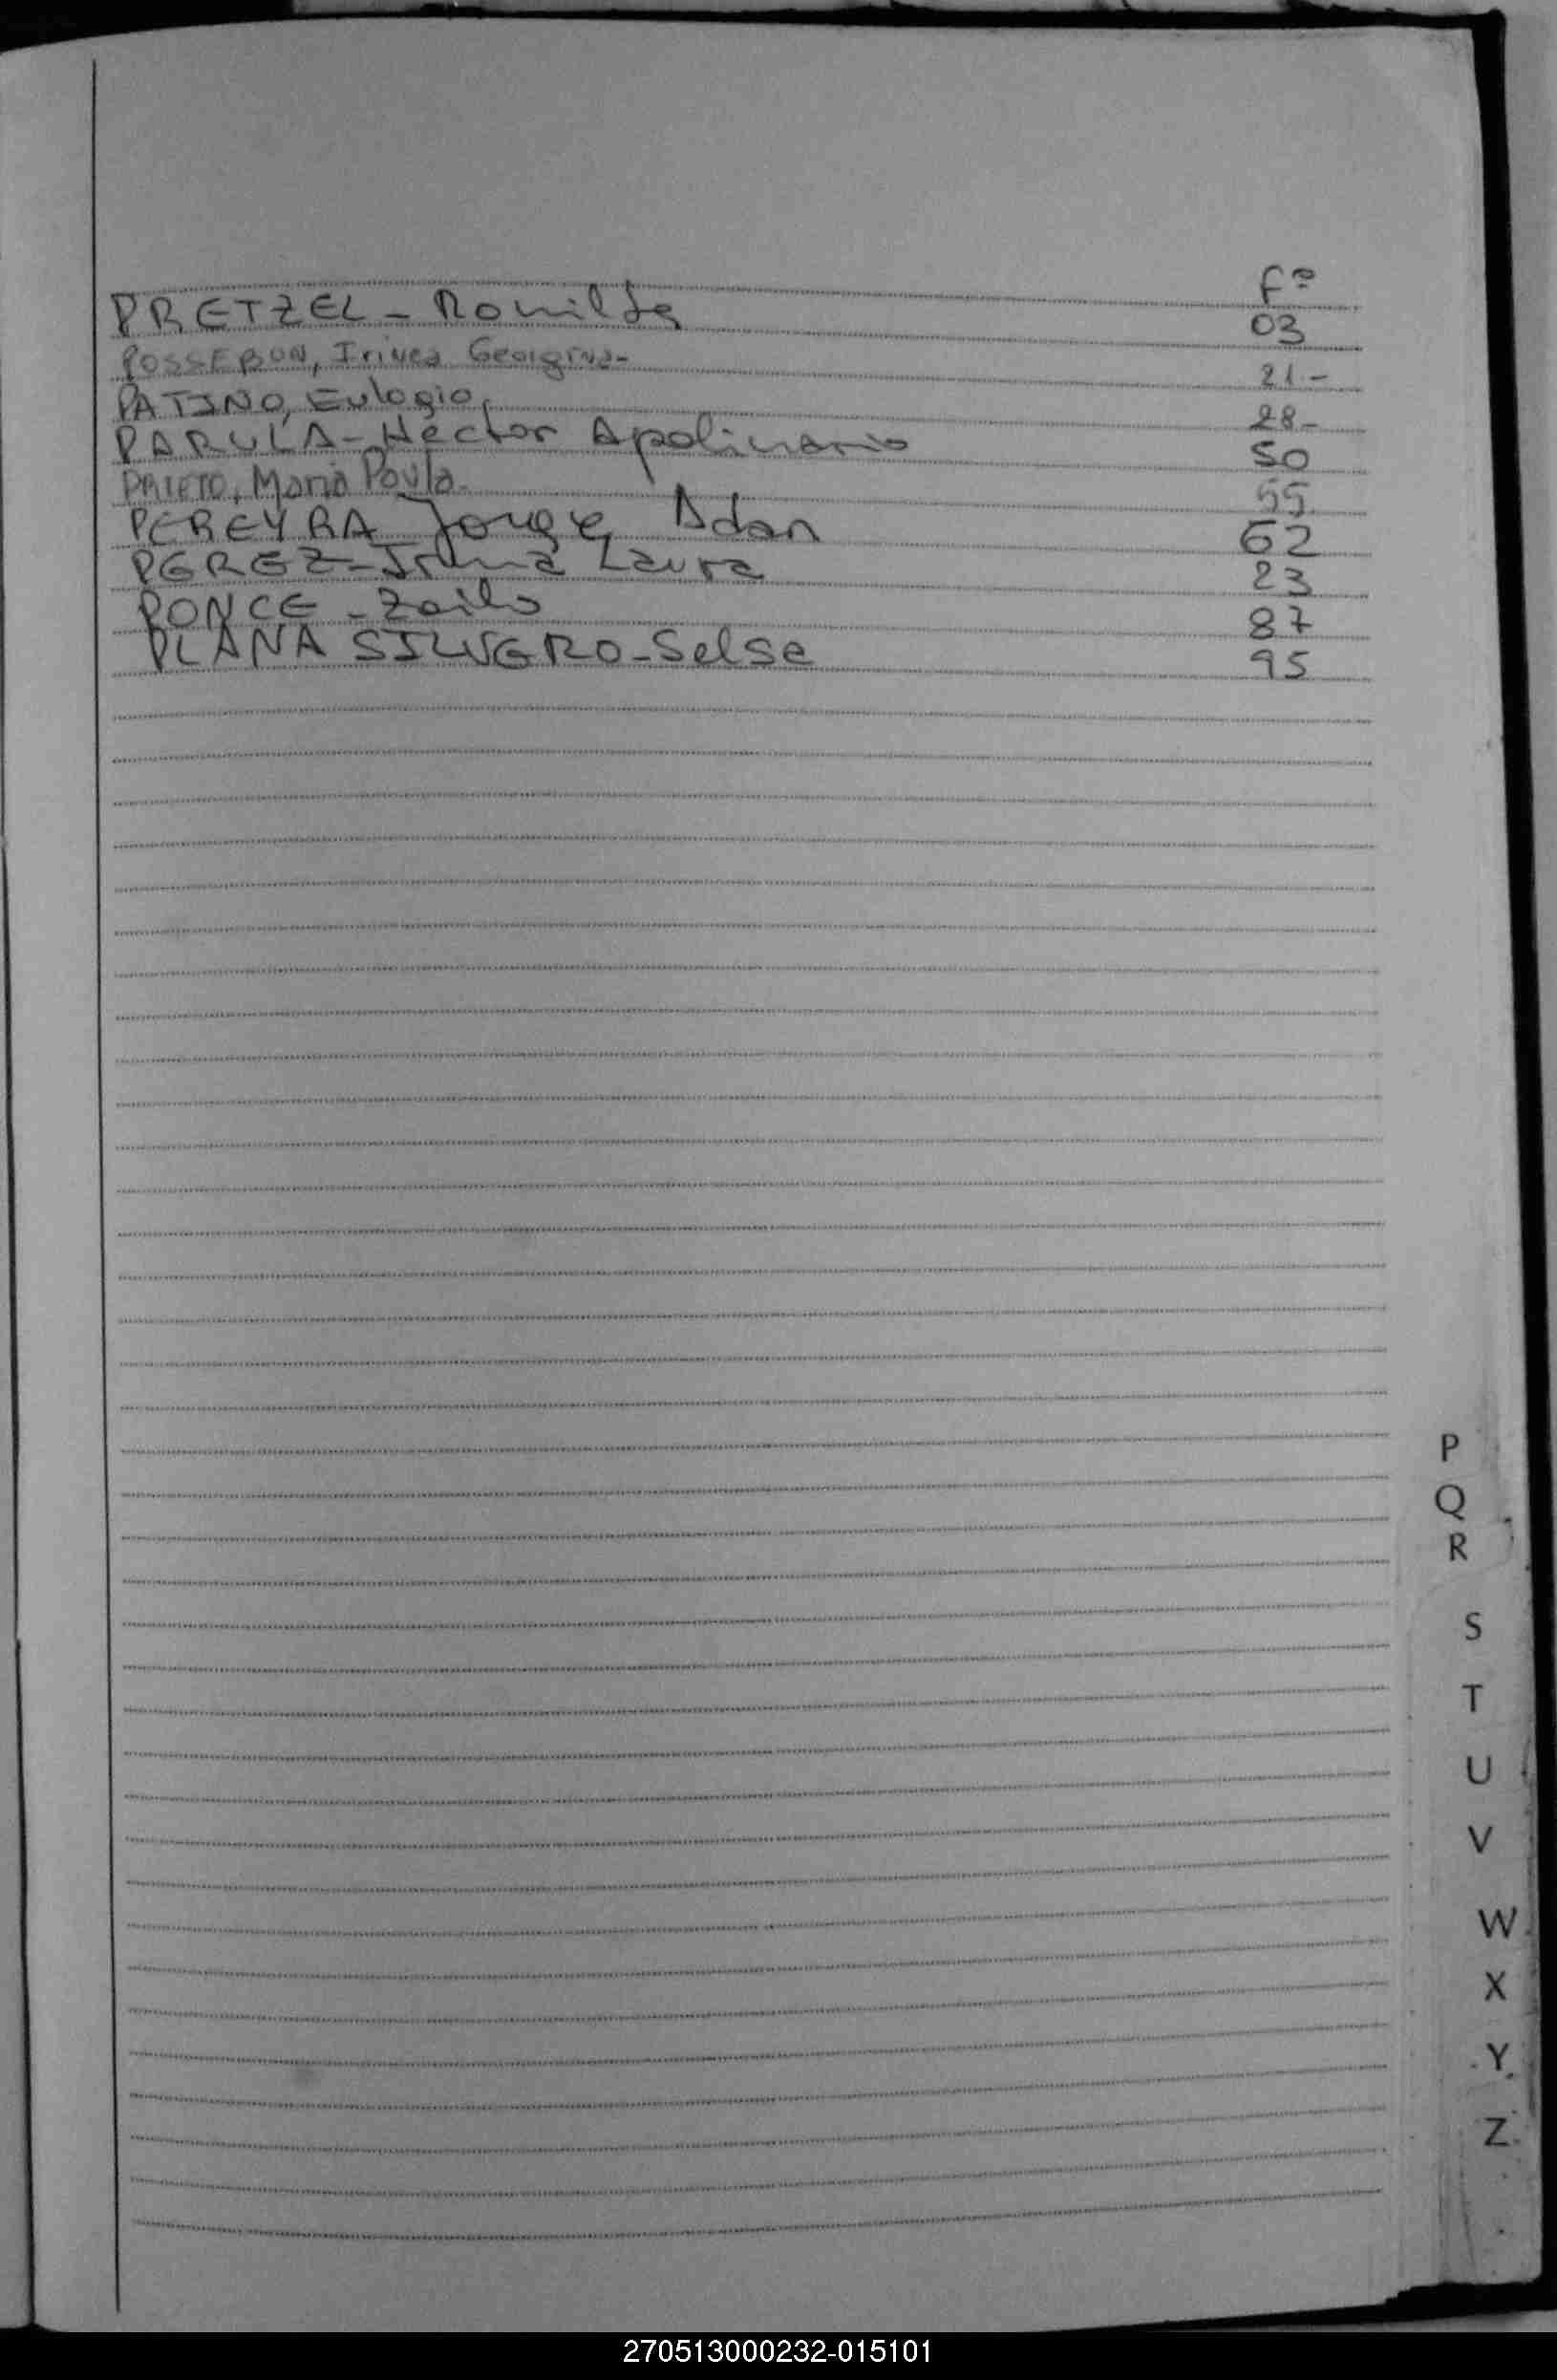 Fº
PRETZEL - Romilda 03
POSSEBON, Irinea Georgina- 21-
PATINO, Eulogio, 28-
PARULA - Hector Apolinario 50
PRIETO, Maria Paula- 55
PEREYRA Jorge Adan 62
PEREZ - Irma Laura 23
PONCE - Zoilo 87
PLANA SILVERO - Selse 95
P
Q
R
S
T
U
V
W
X
Y
Z
270513000232-015101